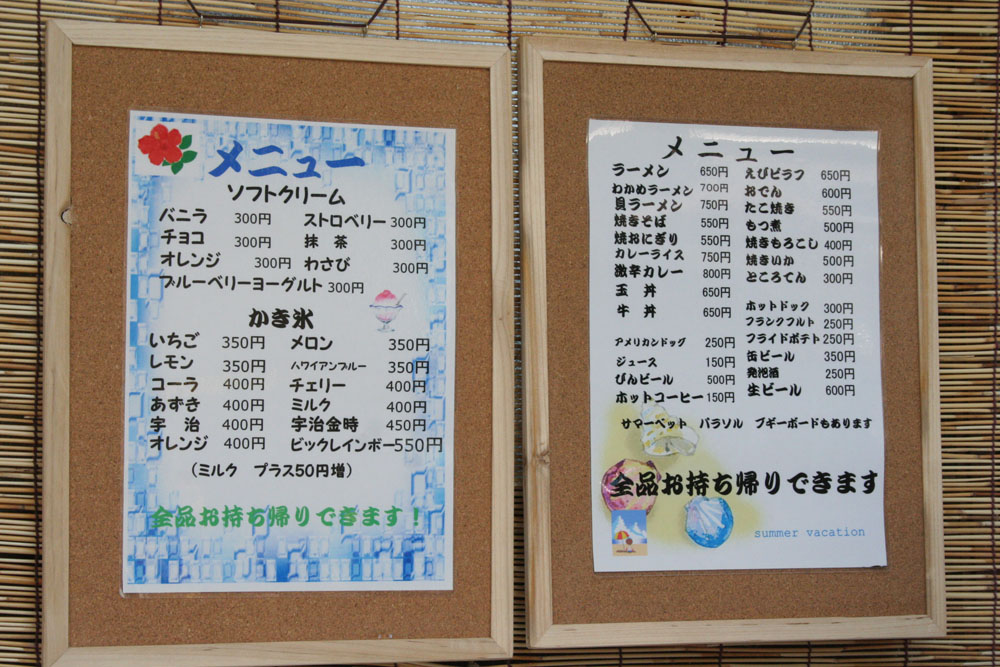 メニュー
ソフトクリーム
バニラ 300円 ストロベリー 300円
チョコ 300円 抹茶 300円
オレンジ 300円 わさび 300円
ブルーベリーヨーグルト 300円
かき氷
いちご 350円 メロン 350円
レモン 350円 ハワイアンブルー 350円
コーラ 400円 チェリー 400円
あずき 400円 ミルク 400円
宇治 400円 宇治金時 450円
オレンジ 400円 ビックレインボー 550円
(ミルク プラス50円増)
全品お持ち帰りできます!
メニュー
ラーメン 650円 えびピラフ 650円
わかめラーメン 700円 おでん 600円
貝ラーメン 750円 たこ焼き 550円
焼きそば 550円 もつ煮 500円
焼おにぎり 550円 焼きもろこし 400円
カレーライス 750円 焼きいか 500円
激辛カレー 800円 ところてん 300円
玉丼 650円
牛丼 650円 ホットドック 300円
フランクフルト 250円
アメリカンドッグ 250円 フライドポテト 250円
ジュース 150円 缶ビール 350円
びんビール 500円 発泡酒 250円
ホットコーヒー 150円 生ビール 600円
サマーベット パラソル ブギーボードもあります
全品お持ち帰りできます
summer vacation